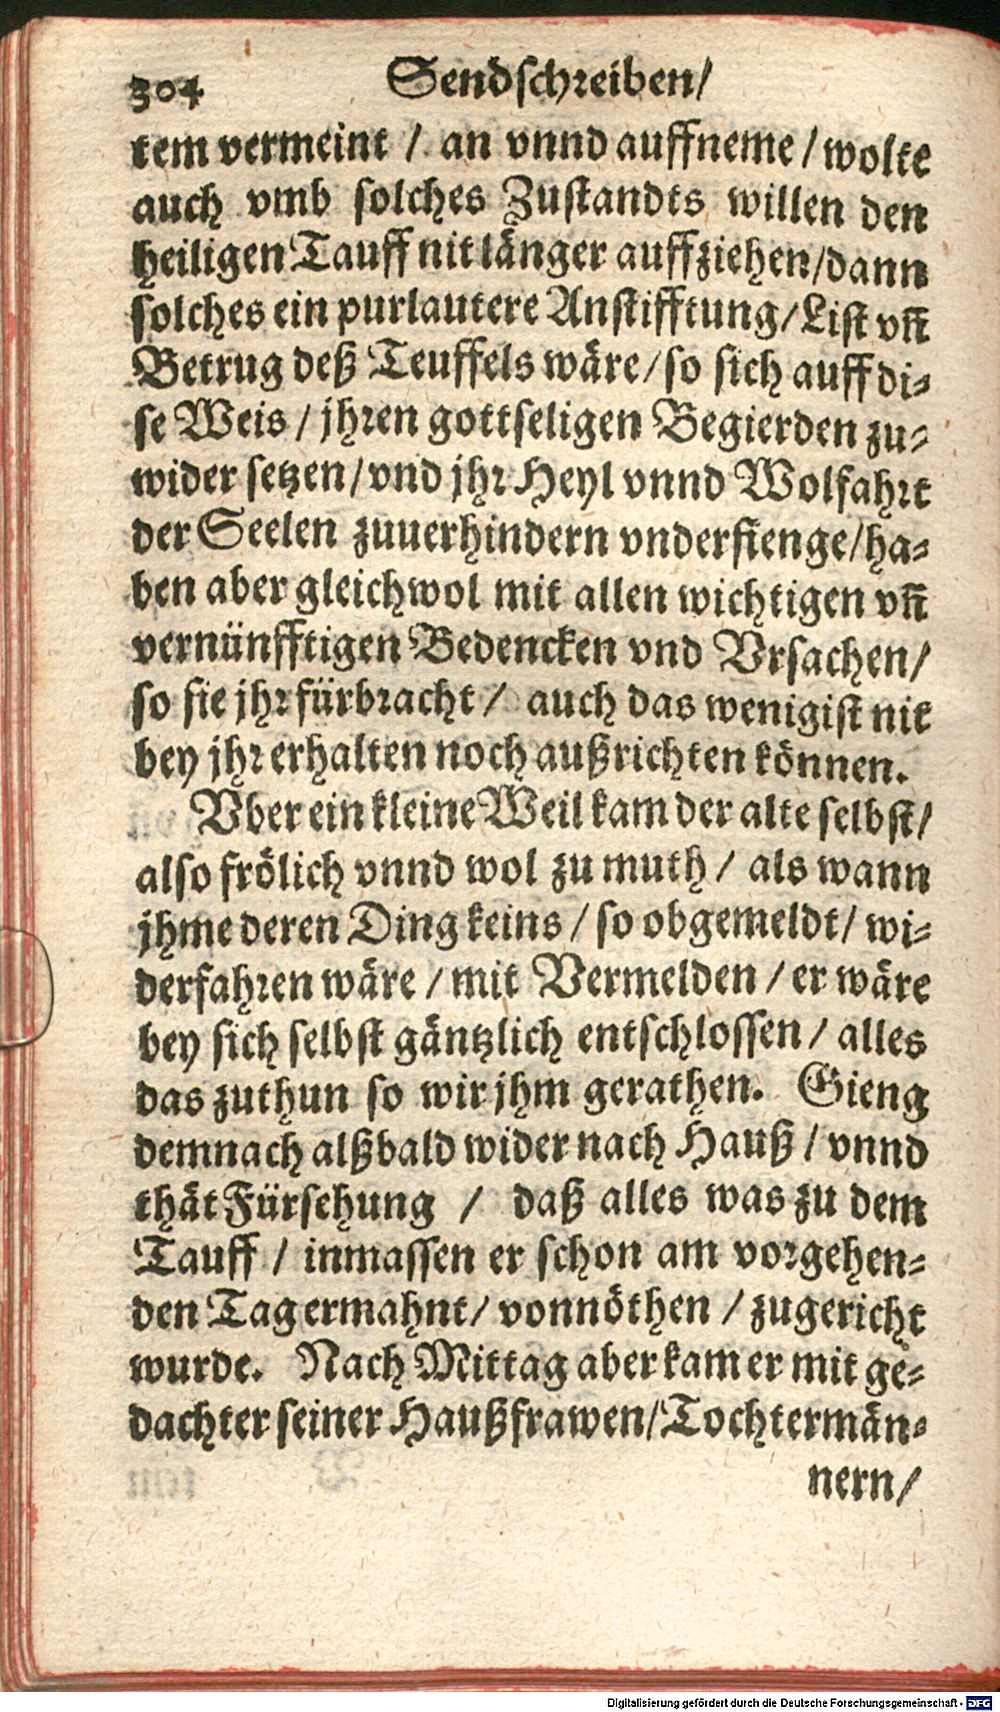 304 Sendschreiben/
tem vermeint / an vnnd auffneme / wolte
auch vmb solches Zustandts willen den
heiligen Tauff nit länger auffziehen/dann
solches ein purlautere Anstifftung/List vñ
Betrug deß Teuffels wäre/so sich auff di-
se Weis / jhren gottseligen Begierden zu-
wider setzen/vnd jhr Heyl vnnd Wolfahrt
der Seelen zuuerhindern vnderfienge/ha-
ben aber gleichwol mit allen wichtigen vñ
vernünfftigen Bedencken vnd Vrsachen/
so sie jhr fürbracht / auch das wenigist nit
bey jhr erhalten noch außrichten können.
Vber ein kleine Weil kam der alte selbst/
also frölich vnnd wol zu muth / als wann
jhme deren Ding keins / so obgemeldt/ wi-
derfahren wäre / mit Vermelden / er wäre
bey sich selbst gäntzlich entschlossen / alles
das zuthun so wir jhm gerathen. Gieng
demnach alßbald wider nach Hauß / vnnd
thät Fürsehung / daß alles was zu dem
Tauff / inmassen er schon am vorgehen-
den Tag ermahnt/ vonnöthen / zugericht
wurde. Nach Mittag aber kam er mit ge-
dachter seiner Haußfrawen/Tochtermän-
nern/
Digitalisierung gefördert durch die Deutsche Forschungsgemeinschaft - DFG